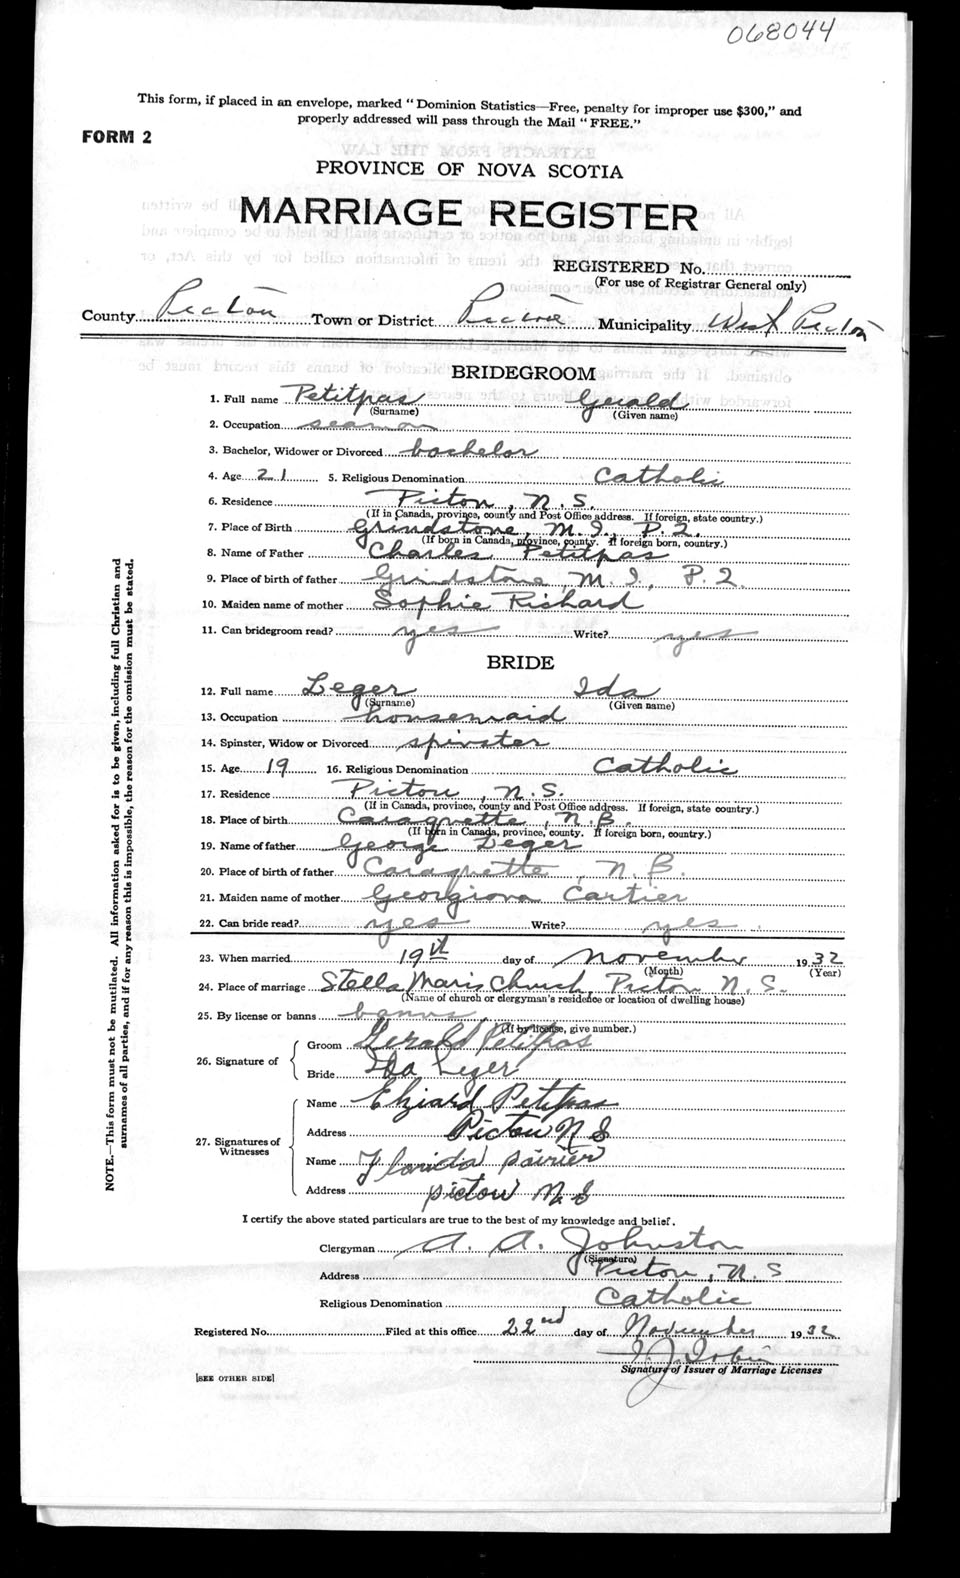 068044
This form, if placed in an envelope, marked "Dominion Statistics—Free, penalty for improper use $300," and
properly addressed will pass through the Mail "FREE."
FORM 2
PROVINCE OF NOVA SCOTIA
MARRIAGE REGISTER
REGISTERED No.
(For use of Registrar General only)
County Pictou Town or District Pictou Municipality West Pictou
BRIDEGROOM
1. Full name Petitpas Gerald
(Surname) (Given name)
2. Occupation seaman
3. Bachelor, Widower or Divorced bachelor
4. Age 21 5. Religious Denomination Catholic
6. Residence Pictou, N.S.
(If in Canada, province, county and Post Office address. If foreign, state country.)
7. Place of Birth Grindstone, M.I., P.2.
(If born in Canada, province, county. If foreign born, country.)
8. Name of Father Charles Petitpas
9. Place of birth of father Grindstone, M.I., P.2.
10. Maiden name of mother Sophie Richard
11. Can bridegroom read? yes Write? yes
BRIDE
12. Full name Leger Ida
(Surname) (Given name)
13. Occupation housemaid
14. Spinster, Widow or Divorced spinster
15. Age 19 16. Religious Denomination Catholic
17. Residence Pictou, N.S.
(If in Canada, province, county and Post Office address. If foreign, state country.)
18. Place of birth Caraquette, N.B.
(If born in Canada, province, county. If foreign born, country.)
19. Name of father George Leger
20. Place of birth of father Caraquette, N.B.
21. Maiden name of mother Georgiona Cartier
22. Can bride read? yes Write? yes.
23. When married 19th day of November 1932
(Month) (Year)
24. Place of marriage Stella Maris Church, Pictou N.S.
(Name of church or clergyman's residence or location of dwelling house)
25. By license or banns banns
(If by license, give number.)
26. Signature of
Groom Gerald Petitpas
Bride Ida Leger
27. Signatures of Witnesses
Name Elziard Petitpas
Address Pictou N S
Name Florida
Address pictou N.S
I certify the above stated particulars are true to the best of my knowledge and belief.
Clergyman A. A. Johnston
(Signature)
Address Pictou, N.S
Religious Denomination Catholic
Registered No. Filed at this office 22nd day of November 1932
Signature of Issuer of Marriage Licenses
[SEE OTHER SIDE]
NOTE.—This form must not be mutilated. All information asked for is to be given, including full Christian and
surnames of all parties, and if for any reason this is impossible, the reason for the omission must be stated.